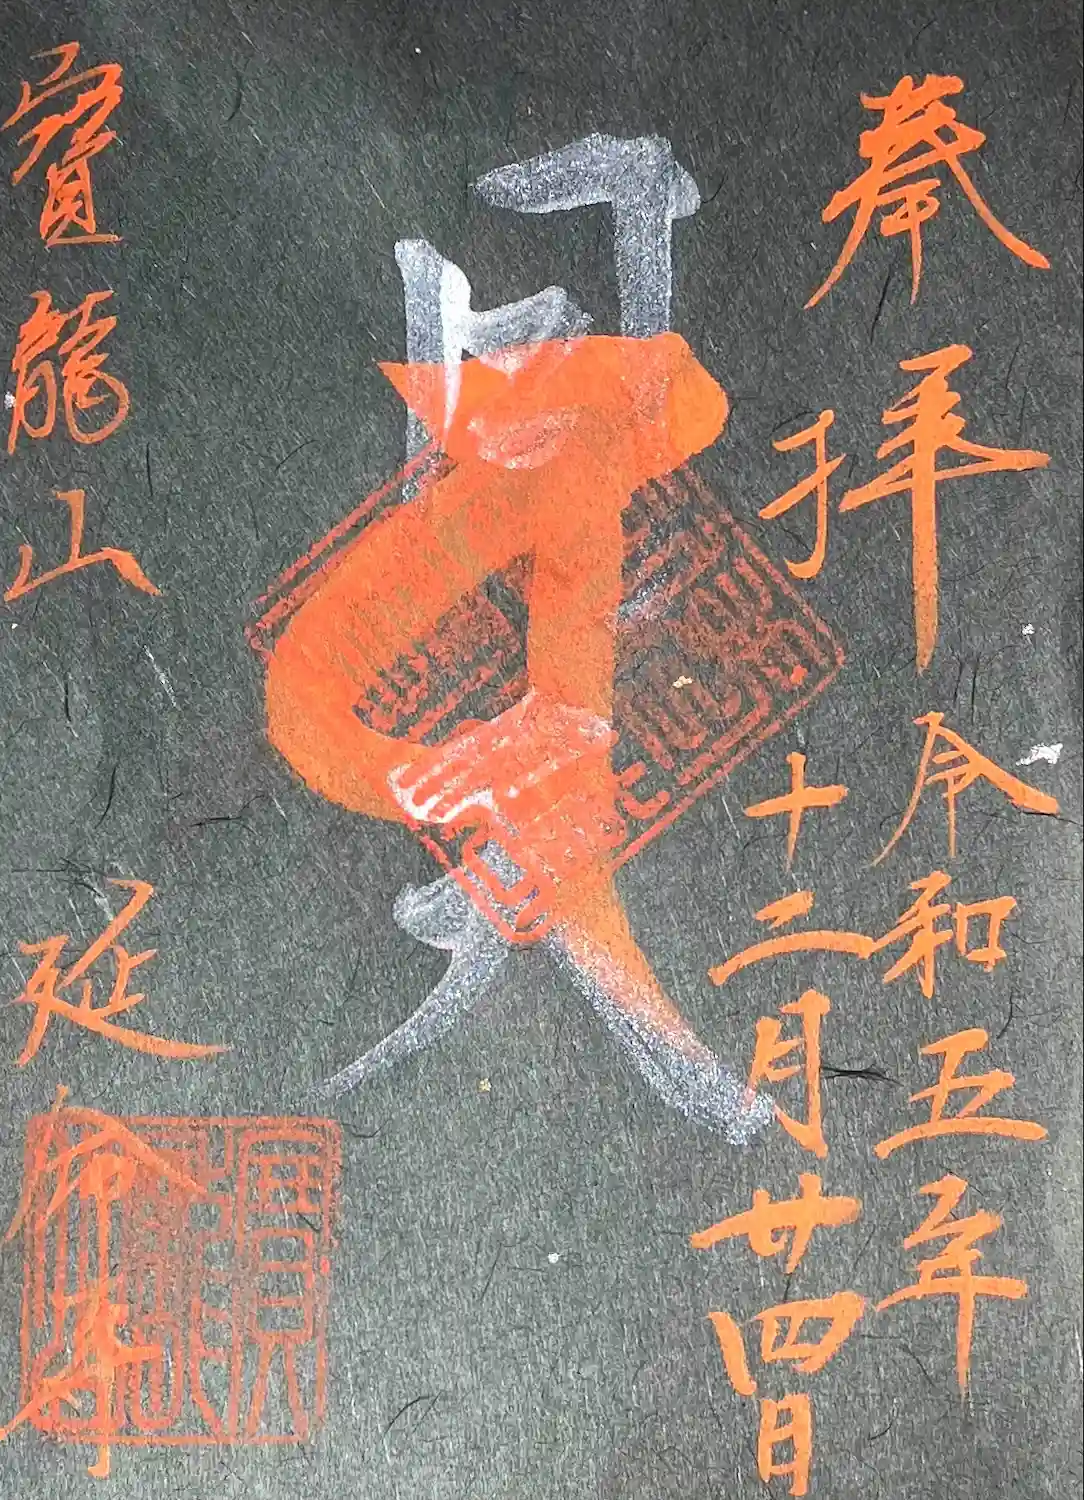 奉拝
令和五年
十二月廿四日
寳龍山
延命寺